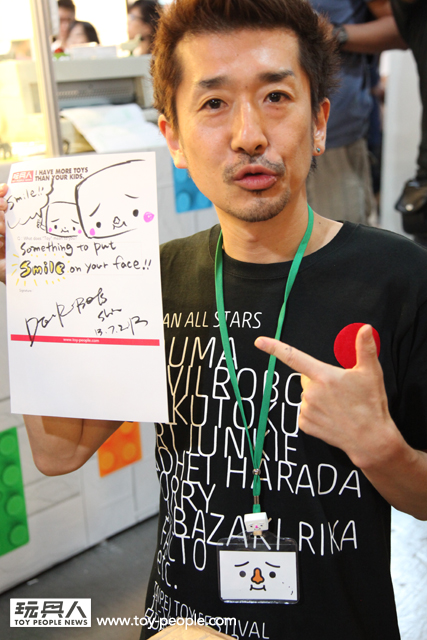 玩具人
I HAVE MORE TOYS
THAN YOUR KIDS.
Smile!!
Something to put
Smile on your face!!
Shin
13.7.2
www.toy-people.com
AN ALL STARS
UMA
ROBO
KUTOKU
JUNKIE
HET HARADA
RRY
BAZARI RIKA
TO
TC.
EI TOY
FESTIVAL
玩具人
TOY PEOPLE NEWS
www.toy-people.com